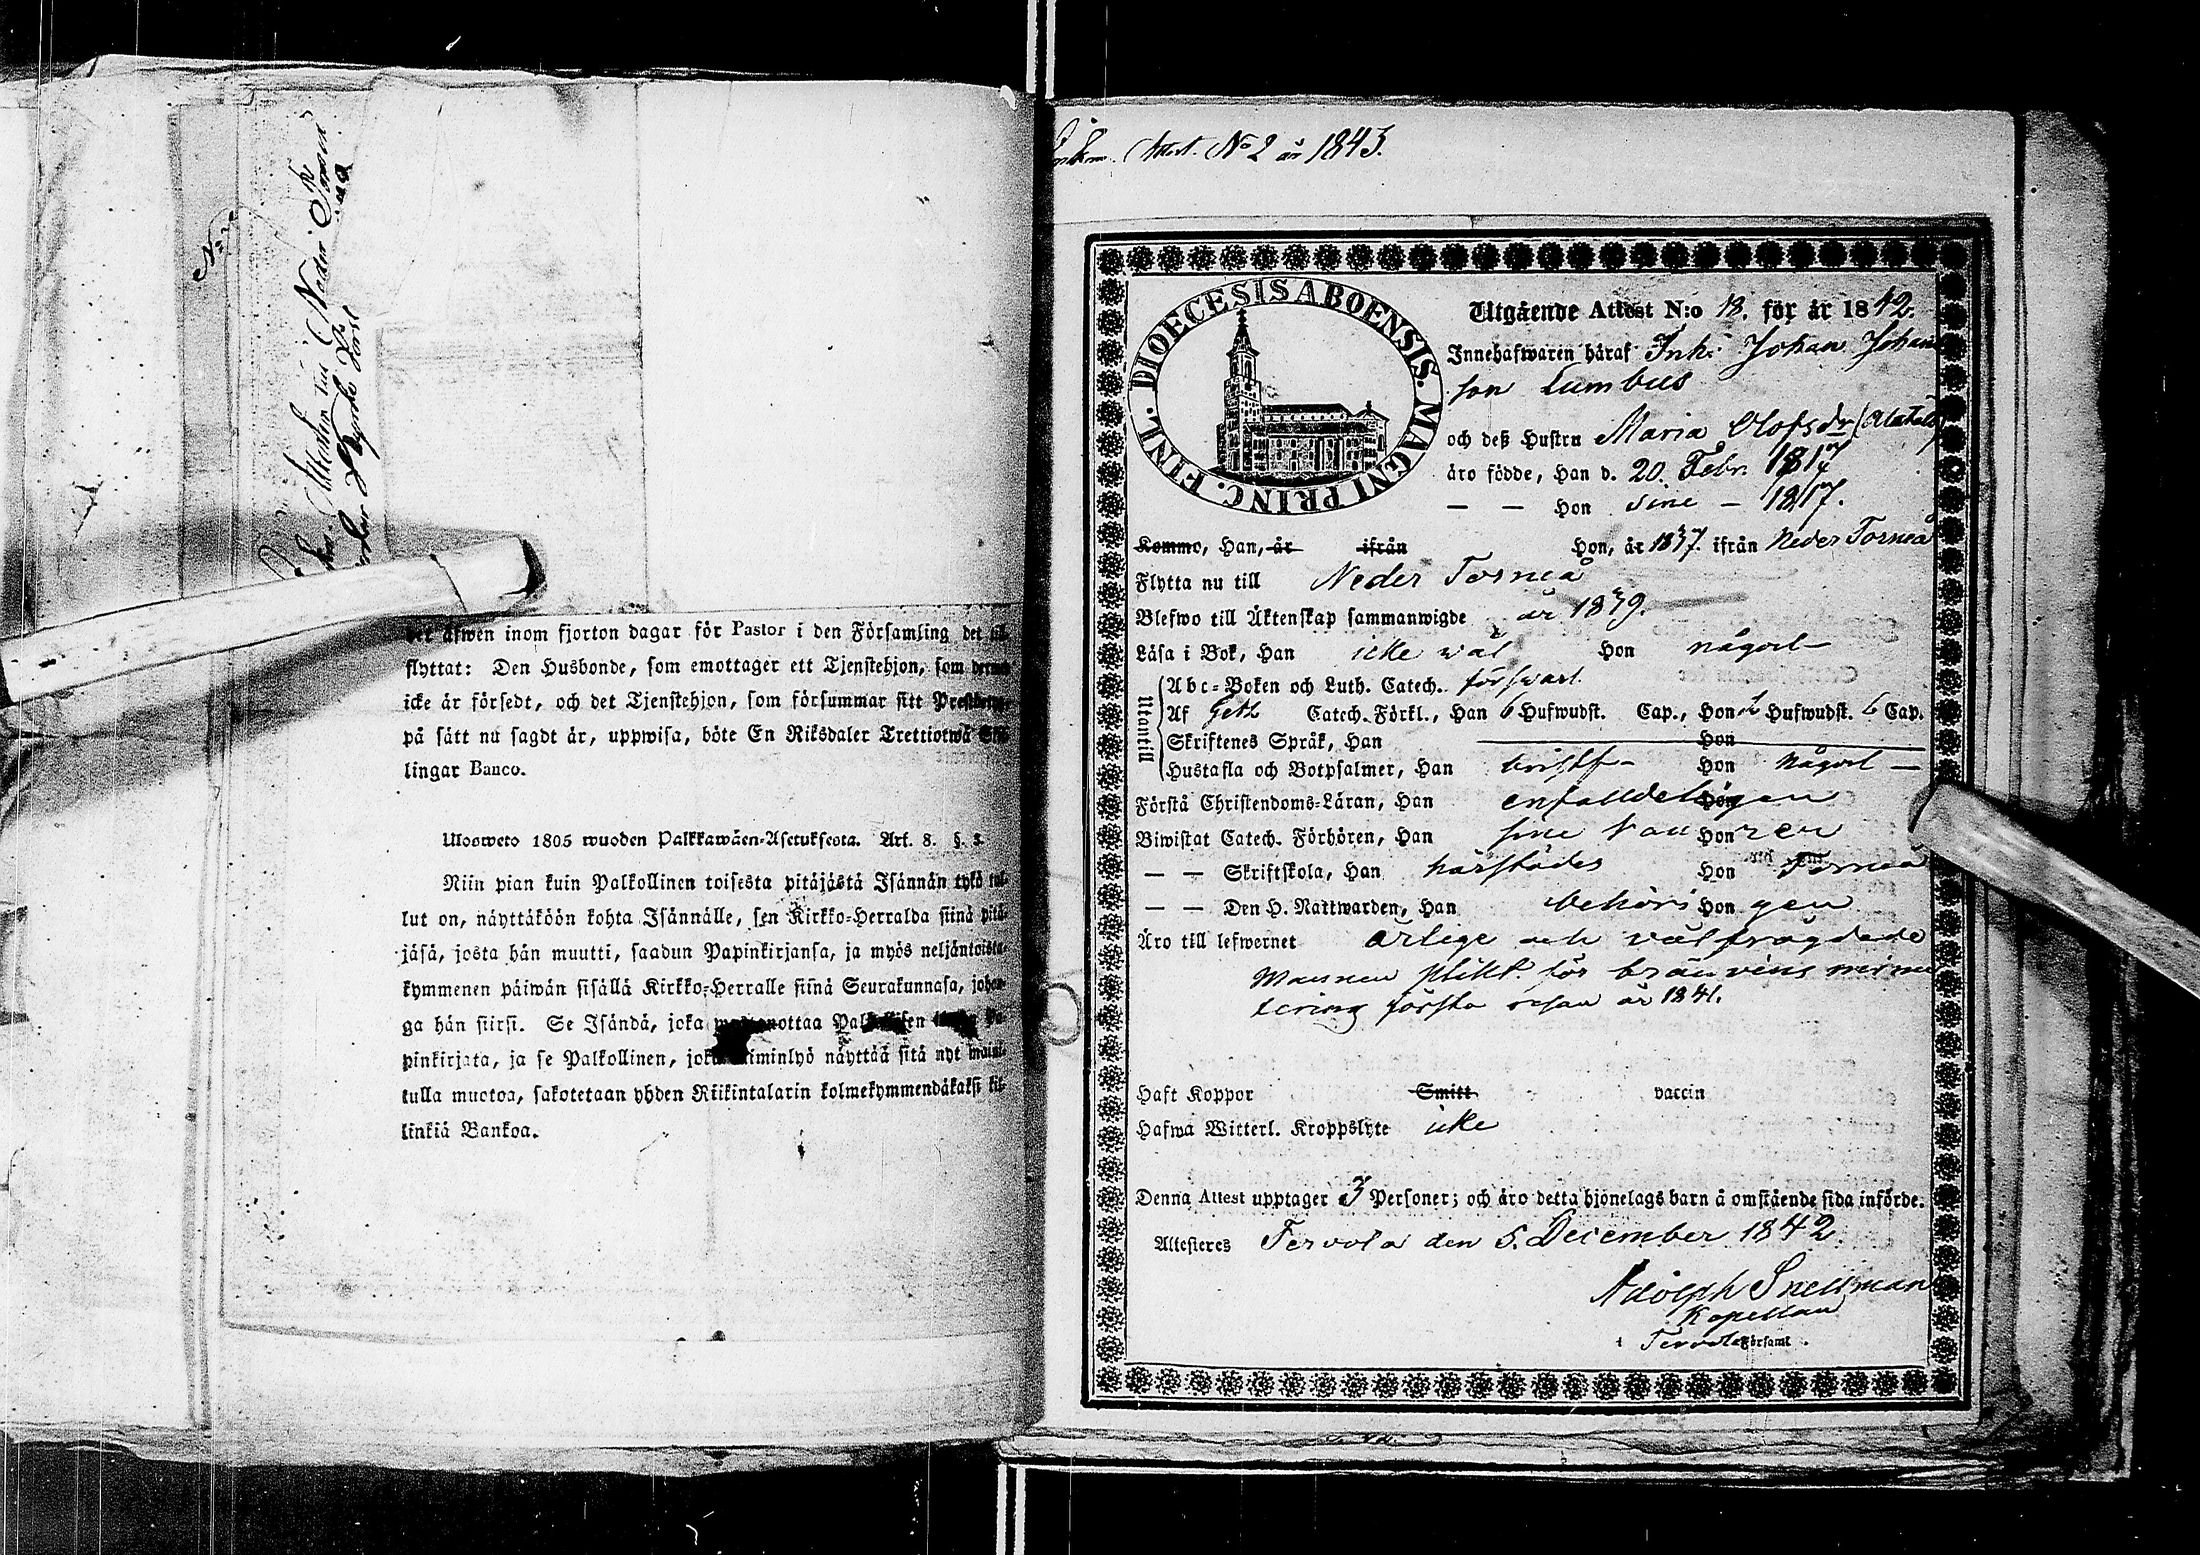 No
Attesten till Neder
det äfwen inom fjorton dagar för Pastor i den Församling det
flyttat: Den Husbonde, som emottager ett Tjenstehjon, som
icke är försedt, och det Tjenstehjon, som försummar sitt
på sätt nu sagdt är, uppwisa, böte En Riksdaler Trettiotwå
lingar Banco.
Ulosweto 1805 wuoden Palkkawäen-Asetuksesta. Art. 8. §. 3.
Niin pian kuin Palkollinen toisesta pitäjästä Isännän tykö tul-
lut on, näyttäköön kohta Isännälle, sen Kirkko-Herralda siinä pitä-
jäsä, josta hän muutti, saadun Papinkirjansa, ja myös neljäntoista-
kymmenen päiwän sisällä Kirkko-Herralle siinä Seurakunnasa, johon-
ga hän siirsi. Se Isändä, joka
pinkirjata, ja se Palkollinen, näyttää sitä nyt maini-
tulla muotoa, sakotetaan yhden Riikintalarin kolmekymmendäkaksi kil-
linkiä Bankoa.
Attest. No 2 år 1843.
DIOECESIS ABOENSIS. MAGNI PRINC. FINL.
Utgående Attest N:o 18. för år 1842.
Innehafwaren häraf Inh. Johan Johans
son Lumbus
och deß Hustru Maria Olofsdr
äro födde, Han d. 20. Febr. 1817
— — Hon sine — 1817.
Komme, Han, år ifrån Hon, år 1837. ifrån Neder Torneå
Flytta nu till Neder Torneå
Blefwo till Äktenskap sammanwigde år 1839.
Läsa i Bok, Han icke väl Hon någorl—
Utantill
Abc-Boken och Luth. Catech. försvarl.
Af Catech. Förkl., Han 6 Hufwudst. Cap., Hon Hufwudst. 6 Cap.
Skriftenes Språk, Han Hon
Hustafla och Botpsalmer, Han bristf— Hon någorl —
Förstå Christendoms-Läran, Han enfalldeligen Hon
Biwistat Catech. Förhören, Han sine Hon
— — Skriftskola, Han härstädes Hon Torneå
— — Den H. Nattwarden, Han behöri Hon gen
Äro till lefwernet ärlige och välfrägdade
Mannen plikt. för bränvins minu
tering första resan år 1841.
Haft Koppor Smitt vaccin
Hafwa Witterl. Kroppslyte icke
Denna Attest upptager 3 Personer; och äro detta hjonelags barn å omstående sida införde.
Attesteres Tervola den 5. December 1842.
Adolph Snellman
Kapellan
i Tervola Församl.